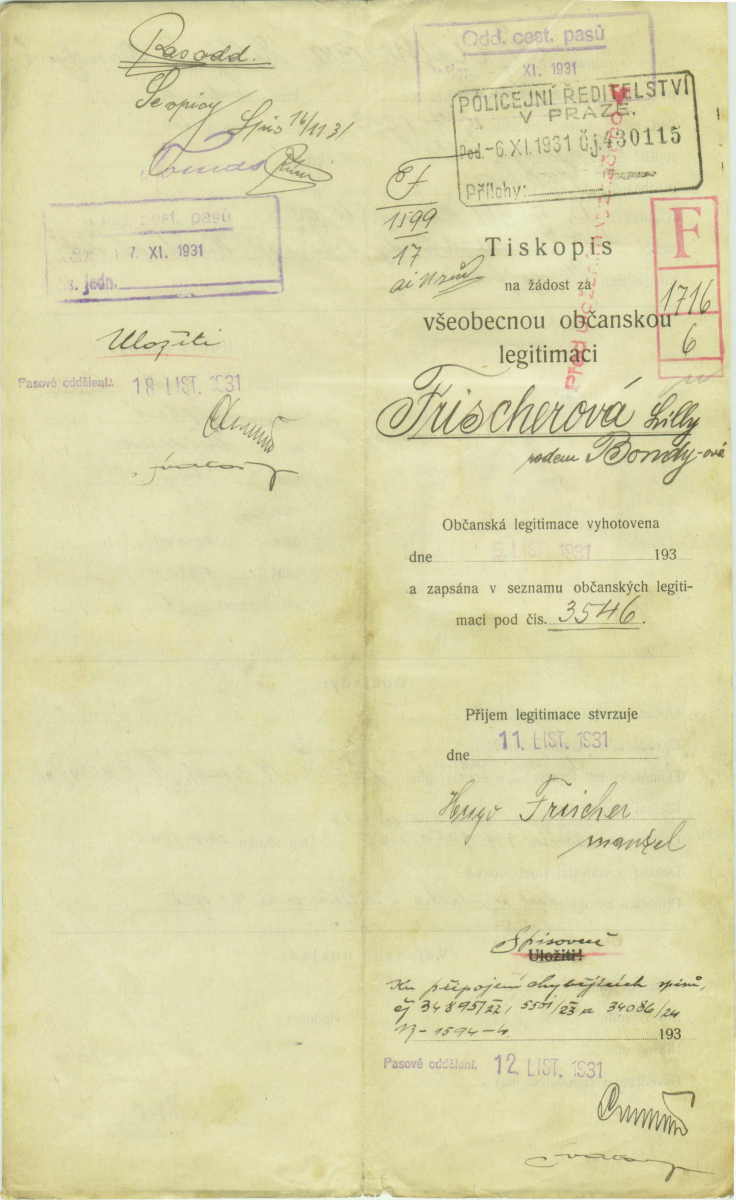 Pas. odd.
Spis 16/11 31
cest. pasů
7. XI. 1931
s. jedn.
Uložiti
Pasové oddělení:
18 LIST. 1931
Odd. cest. pasů
XI. 1931
POLICEJNÍ ŘEDITELSTVÍ
V PRAZE.
Pod. -6. XI. 1931 Čj. 430115
Přílohy:
1599
17
F
1716
6
Tiskopis
na žádost za
všeobecnou občanskou
legitimaci
Frischerová Lilly
rodem Bondy-ová
Občanská legitimace vyhotovena
dne LIST 1931 193
a zapsána v seznamu občanských legiti-
maci pod čís. 3546.
Příjem legitimace stvrzuje
dne 11. LIST. 1931
Hugo Frischer
manžel
Spisovně
Uložiti!
Ku připojení chybějících spisů,
čj 34895/22, 5551/23 a 34086/24
193
Pasové oddělení. 12. LIST. 1931